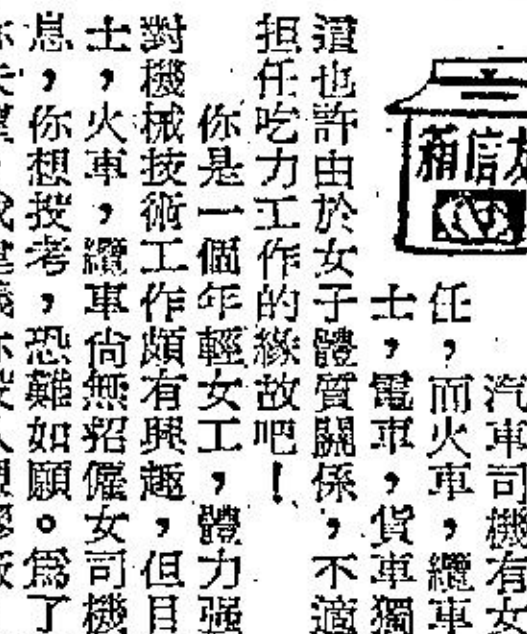 友信箱
汽車司機有女
任，而火車，纜車
士，電車，貨車獨
這也許由於女子體質關係，不適
担任吃力工作的緣故吧！
你是一個年輕女工，體力强
對機械技術工作頗有興趣，但目
士，火車，纜車尚無招僱女司機
息，你想投考，恐難如願。爲了